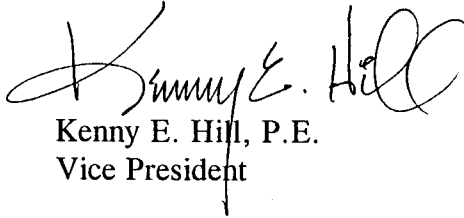 Kenny E. Hill
Kenny E. Hill, P.E.
Vice President